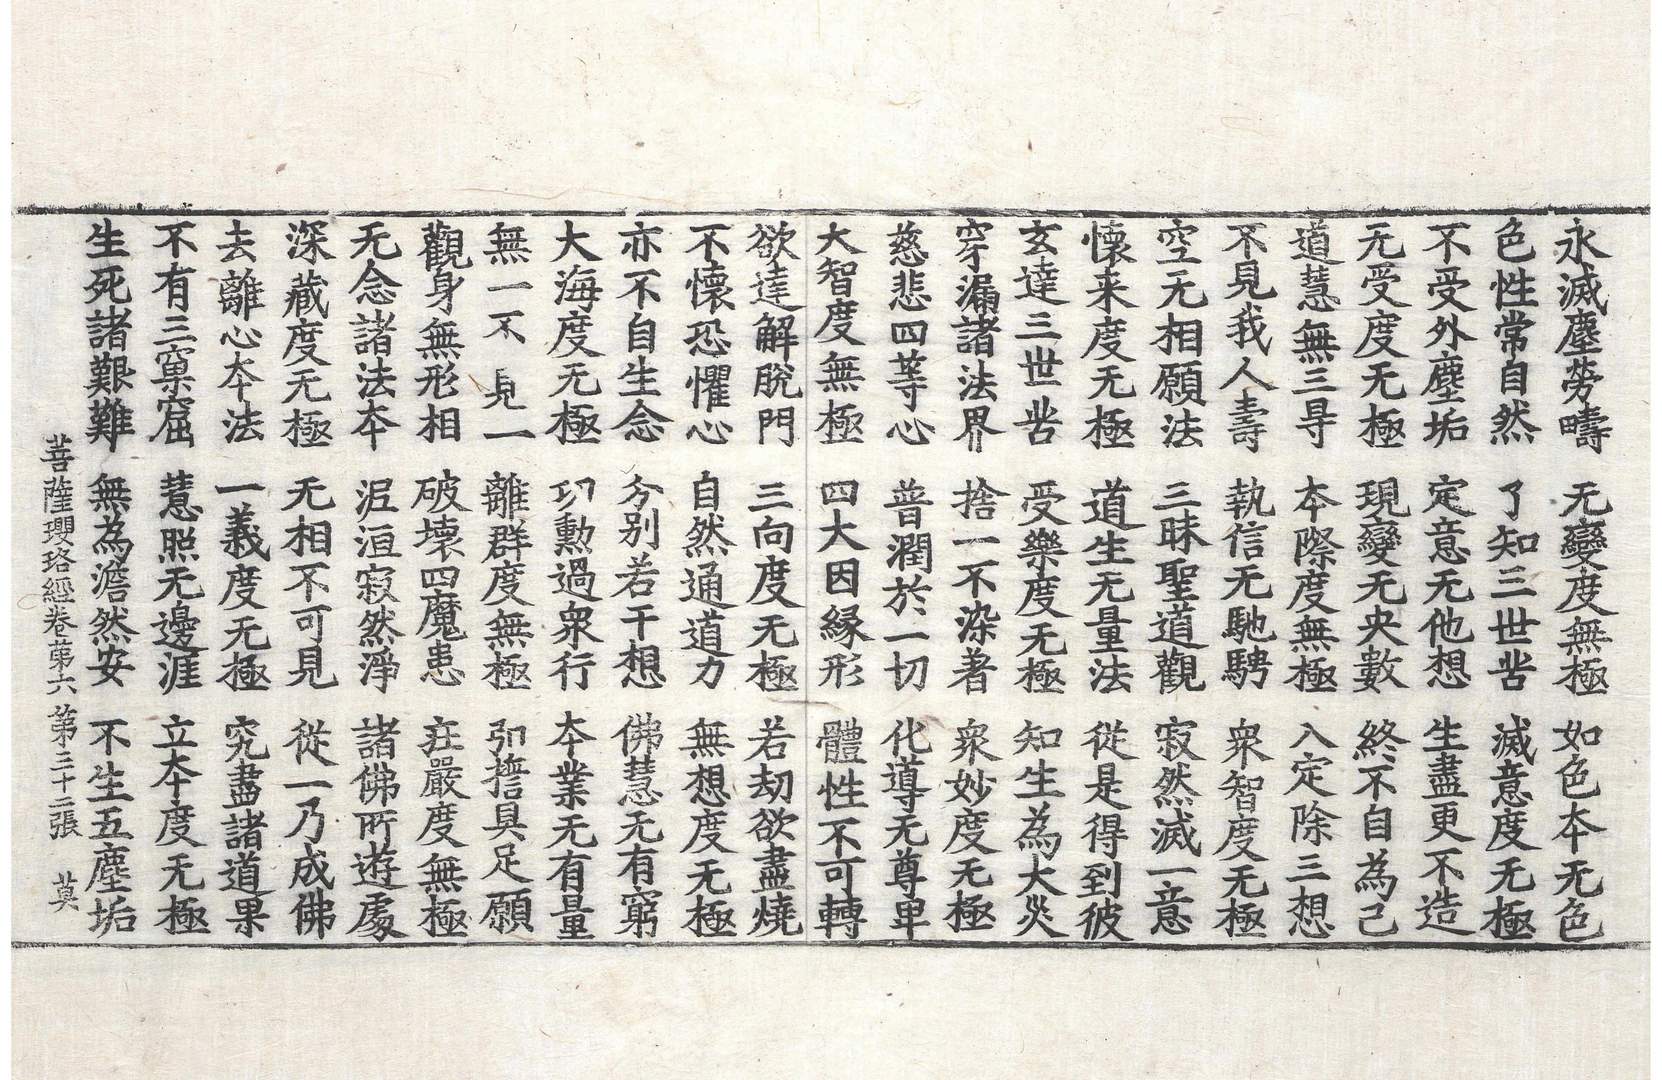 永滅塵勞疇　无變度無極　如色本无色
色性常自然　了知三世苦　滅意度无極
不受外塵垢　定意无他想　生盡更不造
无受度无極　現變无央數　終不自為己
道慧無三㝵　本際度無極　入定除三想
不見我人壽　執信无馳騁　衆智度无極
空无相願法　三昧聖道觀　寂然滅一意
懷来度无極　道生无量法　從是得到彼
玄達三世苦　受樂度无極　知生為大災
穿漏諸法界　捨一不染著　衆妙度无極
慈悲四等心　普潤於一切　化導无尊卑
大智度無極　四大因縁形　體性不可轉
欲達解脫門　三向度无極　若劫欲盡燒
不懷恐懼心　自然通道力　無想度无極
亦不自生念　分別若干想　佛慧无有窮
大海度无極　功勳過衆行　本業无有量
無一不見一　離群度無極　弘誓具足願
觀身無形相　破壞四魔患　莊嚴度無極
无念諸法本　泥洹寂然淨　諸佛所遊處
深藏度无極　无相不可見　從一乃成佛
去離心本法　一義度无極　究盡諸道果
不有三窠窟　慧照无邊涯　立本度无極
生死諸艱難　無為澹然安　不生五塵垢
菩薩瓔珞經卷第六　第三十二張　莫